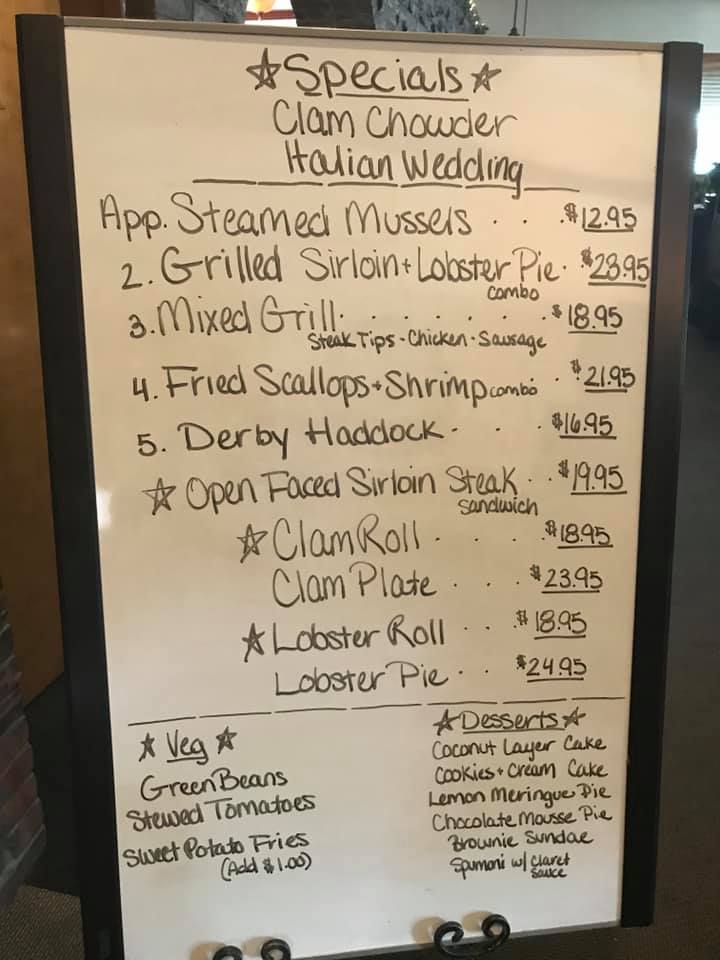 ☆ Specials ☆
Clam Chowder
Italian Wedding
App. Steamed Mussels . . . $12.95
2. Grilled Sirloin + Lobster Pie . $23.95
combo
3. Mixed Grill . . . . . . . $18.95
Steak Tips - Chicken - Sausage
4. Fried Scallops + Shrimp combo . $21.95
5. Derby Haddock . . . $16.95
☆ Open Faced Sirloin Steak . . $19.95
Sandwich
☆ Clam Roll . . . . $18.95
Clam Plate . . . $23.95
☆ Lobster Roll . . . $18.95
Lobster Pie . . $24.95
☆ Veg ☆
Green Beans
Stewed Tomatoes
Sweet Potato Fries
(Add $1.00)
☆ Desserts ☆
Coconut Layer Cake
Cookies + Cream Cake
Lemon Meringue Pie
Chocolate Mousse Pie
Brownie Sundae
Spumoni w/ Claret
Sauce